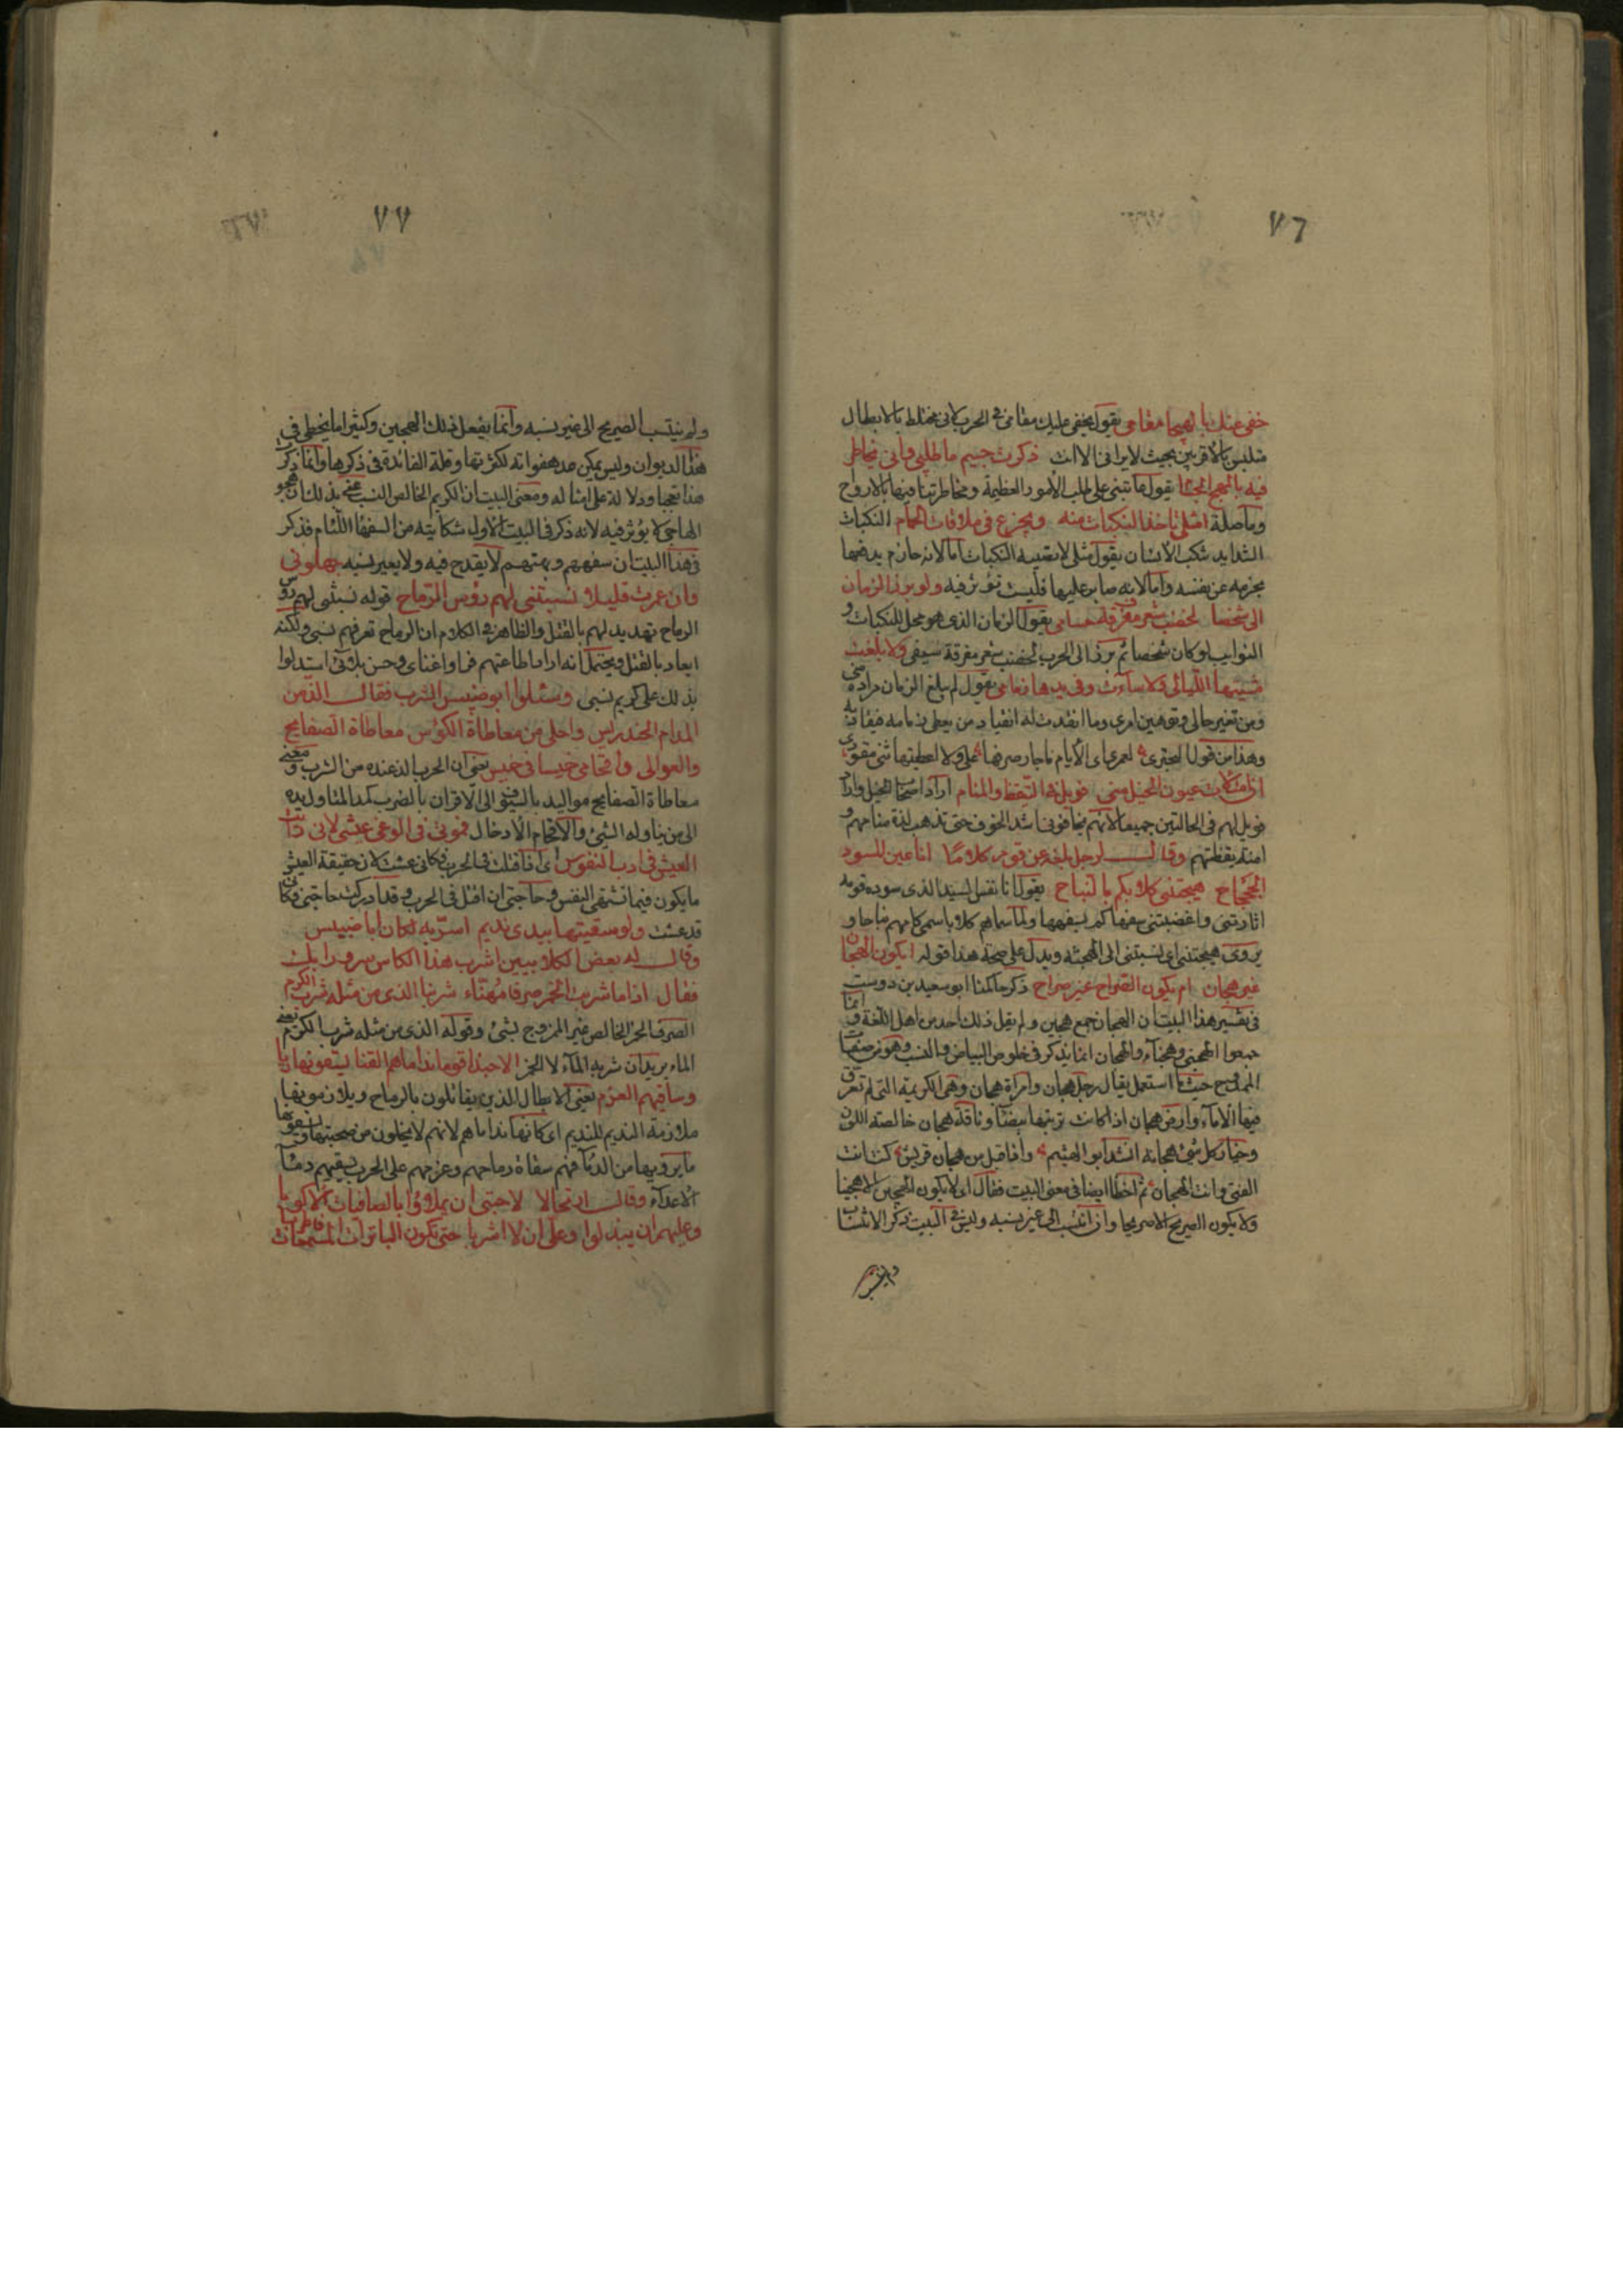 ٧٦
خفى عنك بالهيجا مقامى يقول يخفى عليك مقامى فى الحرب لانى مختلط بالابطال
متلبس بالاقران بحيث لا يرانى الا انت ذكرت جسيم ما طلبى وانى نخاطر
فيه بالمهج الجسام يقول ما تبنى على طلب الامور العظيمة ومخاطرتنا فيها بالارواح
امثلى تاخذ النكبات منه ويجزع فى ملاقات الحمام النكبات
الشدايد تنكب الانسان يقول مثلى لا تصيبه النكبات اما لانه حازم يدفعها
بحزمه عن نفسه واما لانه صابر عليها فليست تؤثر فيه ولو برز الزمان
الى شخصا لخضب شعر مفرقه حسامى يقول الزمان الذى هو محل للنكبات و
النوايب لو كان شخصا ثم برز الى الحرب لخضب شعر مفرقه سيفى ولا بلغت
مشيتها الليالى ولا سارت وفى يدها زمامى يقول لم يبلغ الزمان مراده منى
من تغيير حالى وتوهين امرى وما انقدت له انقياد من يعطى زمامه
وهذا من قول البحترى لعمر ابى الايام ما جار صرفها على ولا اعطيتها ثنى مقودى
اذا امتلأت عيون الخيل منى فويل فى التيقظ والمنام اراد اصحاب الخيل واراد
فويل لهم فى الحالتين جميعا لانهم يخافونى اشد الخوف حتى تذهب لذة منامهم و
امنة يقظتهم وقال لرجل بلغه عن قوم كلاما انا عين المسود
الجحجاح هيجتنى كلابكم بالنباح يقول انا نفس السيد الذى سوده قومه
اثارتنى واغضبتنى سفهاكم بسفهها ولما سماهم كلابا سمى كلامهم نباحا و
يروى هجنتنى اى نسبتنى الى الهجنة ويدل على صحة هذا قوله ايكون الهجان
غير هجان ام يكون الصراح غير صراح ذكر حاكمنا ابو سعيد بن دوست
فى تفسير هذا البيت ان الهجان جمع هجين ولم يقل ذلك احد من اهل اللغة وانما
جمعوا الهجين هجناء والهجان انما يذكر فى خلوص البياض والنسب وهو من صفة
المدح حيث ما استعمل يقال رجل هجان وامراة هجان وهى الكريمة التى لم تعرق
فيها الاماء وارض هجان اذا كانت تربتها بيضا وناقة هجان خالصة اللون
وخيار كل شئ هجانه انشد ابو الهيثم واذا قيل من هجان قريش كنت انت
الفتى وانت الهجان ثم اخطا ايضا فى معنى البيت فقال اى لا يكون الهجين الا هجينا
ولا يكون الصريح الا صريحا وان انتسب الى غير نسبه وليس فى البيت ذكر الانتساب
٧٧
ولم ينتسب الصريح الى غير نسبه وانما يفعل ذلك الهجين وكثيرا ما يخطى فى
هذا الديوان وليس يمكن عد هفواته لكثرتها وقلة الفائدة فى ذكرها وانما ذكرت
هذا تعجبا ودلالة على امثاله ومعنى البيت ان الكريم الخالص النسب عنى بذلك ان هجو
الهاجى لا يؤثر فيه لانه ذكر فى البيت الاول شكايته من السفها اللئام فذكر
فى هذا البيت ان سفههم لا يقدح فيه ولا يغير نسبه جهلونى
وان عمرت قليلا نسبتنى لهم رؤس الرماح قوله نسبتنى لهم رؤس
الرماح تهديد لهم بالقتل والظاهر فى الكلام ان الرماح تعرفهم نسبى ولكنه
ايعاد بالقتل ويحتمل انه اراد اطاعتهم فراوا غناى وحسن بلائى استدلوا
بذلك على كريم نسبى وسئله ابو ضبيس الشرب فقال الذ من
المدام الخندريس واحلى من معاطاة الكؤس معاطاة الصفايح
والعوالى واقحامى خميسا فى خميس يعنى ان الحرب الذ عنده من الشرب ومعنى
معاطاة الصفايح مد اليد بالسيف الى الاقران بالضرب كمد المناول يده
الى من يناوله الشئ والاقحام الادخال فموتى فى الوغى عيشى لانى رايت
العيش فى ارب النفوس اى اذا قتلت فى الحرب فكانى عشت لان حقيقة العيش
ما يكون فيما تشتهى النفس وحاجتى ان اقتل فى الحرب وقد ادركت حاجتى فكانى
قد عشت ولو سقيتها بيدى نديم اسر به لكان ابا ضبيس
وقال له بعض الكلابيين اشرب هذا الكاس سرورا بك
فقال اذا ما شربت الخمر صرفا مهنّاء شربنا الذى من مثله شرب الكرم
الصرف الخمر الخالص غير الممزوج بشئ وقوله الذى من مثله شرب الكرم يعنى
الماء يريد ان شربه الماء لا الخمر الا حبذا قوم نداماهم القنا يسقونها ريا
وساقيهم العزم يعنى الابطال الذين يقاتلون بالرماح ويلازمونها
ملازمة النديم للنديم اى كانها نداماهم لانهم لا يخلون من صحبتها ويسقونها
ما يرويها من الدماء فهم سقاة رماحهم وعزمهم على الحرب يسقيهم دماء
الاعداء وقال ارتجالا لاحبتى ان يملاؤا بالصافيات الاكوبا
وعليهم ان يبذلوا وعلى ان لا اشربا حتى تكون الباترات المسمعات فاطربا